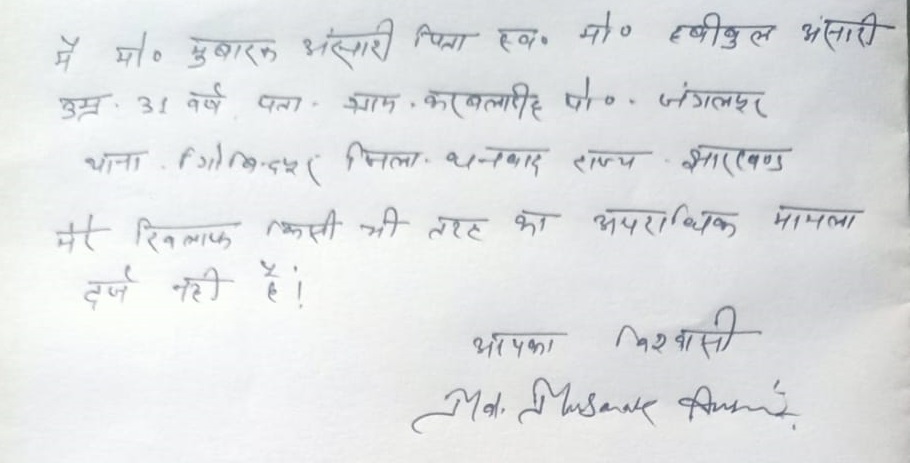 मैं मो० मुबारक अंसारी पिता स्व० मो० हबीबुल अंसारी
उम्र. 31 वर्ष पता. ग्राम. करबलाडीह पो०. जंगलपुर
थाना. गोबिन्दपुर जिला. धनबाद राज्य. झारखण्ड
मेरे खिलाफ किसी भी तरह का अपराधिक मामला
दर्ज नही है!
आपका विश्वासी
Md. Mubarak Ansari